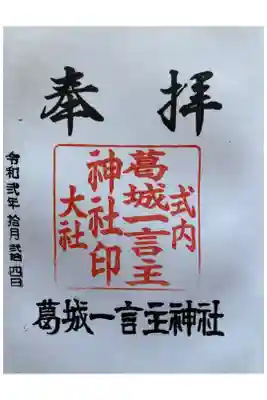 奉拝
式内
葛城一言主
神社印
大社
葛城一言主神社
令和弐年拾月弐拾四日